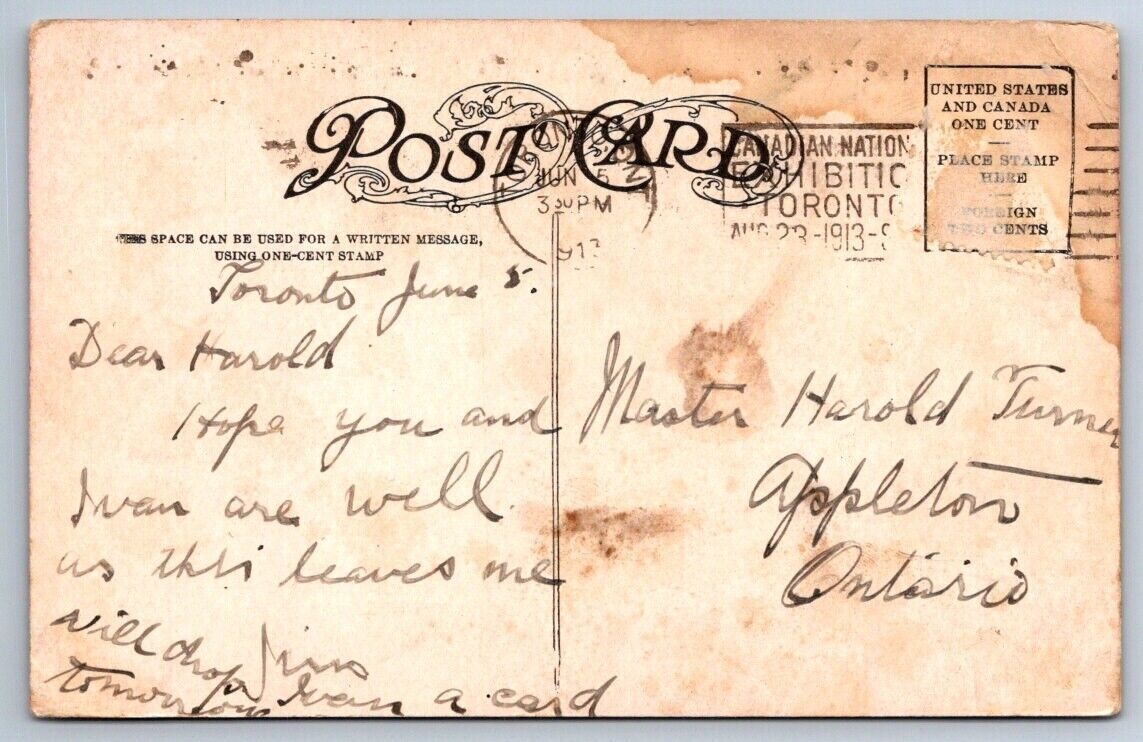 POST CARD
JUN 5
3 30 PM
191
CANADIAN NATION
EXHIBITIO
TORONTO
AUG 23-1913-S
UNITED STATES
AND CANADA
ONE CENT
PLACE STAMP
HERE
FOREIGN
TWO CENTS
THIS SPACE CAN BE USED FOR A WRITTEN MESSAGE,
USING ONE-CENT STAMP
Toronto June 5.
Dear Harold
Hope you and
Ivan are well
as this leaves me
Jim
will drop Ivan a card
tomorrow
Master Harold Turner
Appleton
Ontario